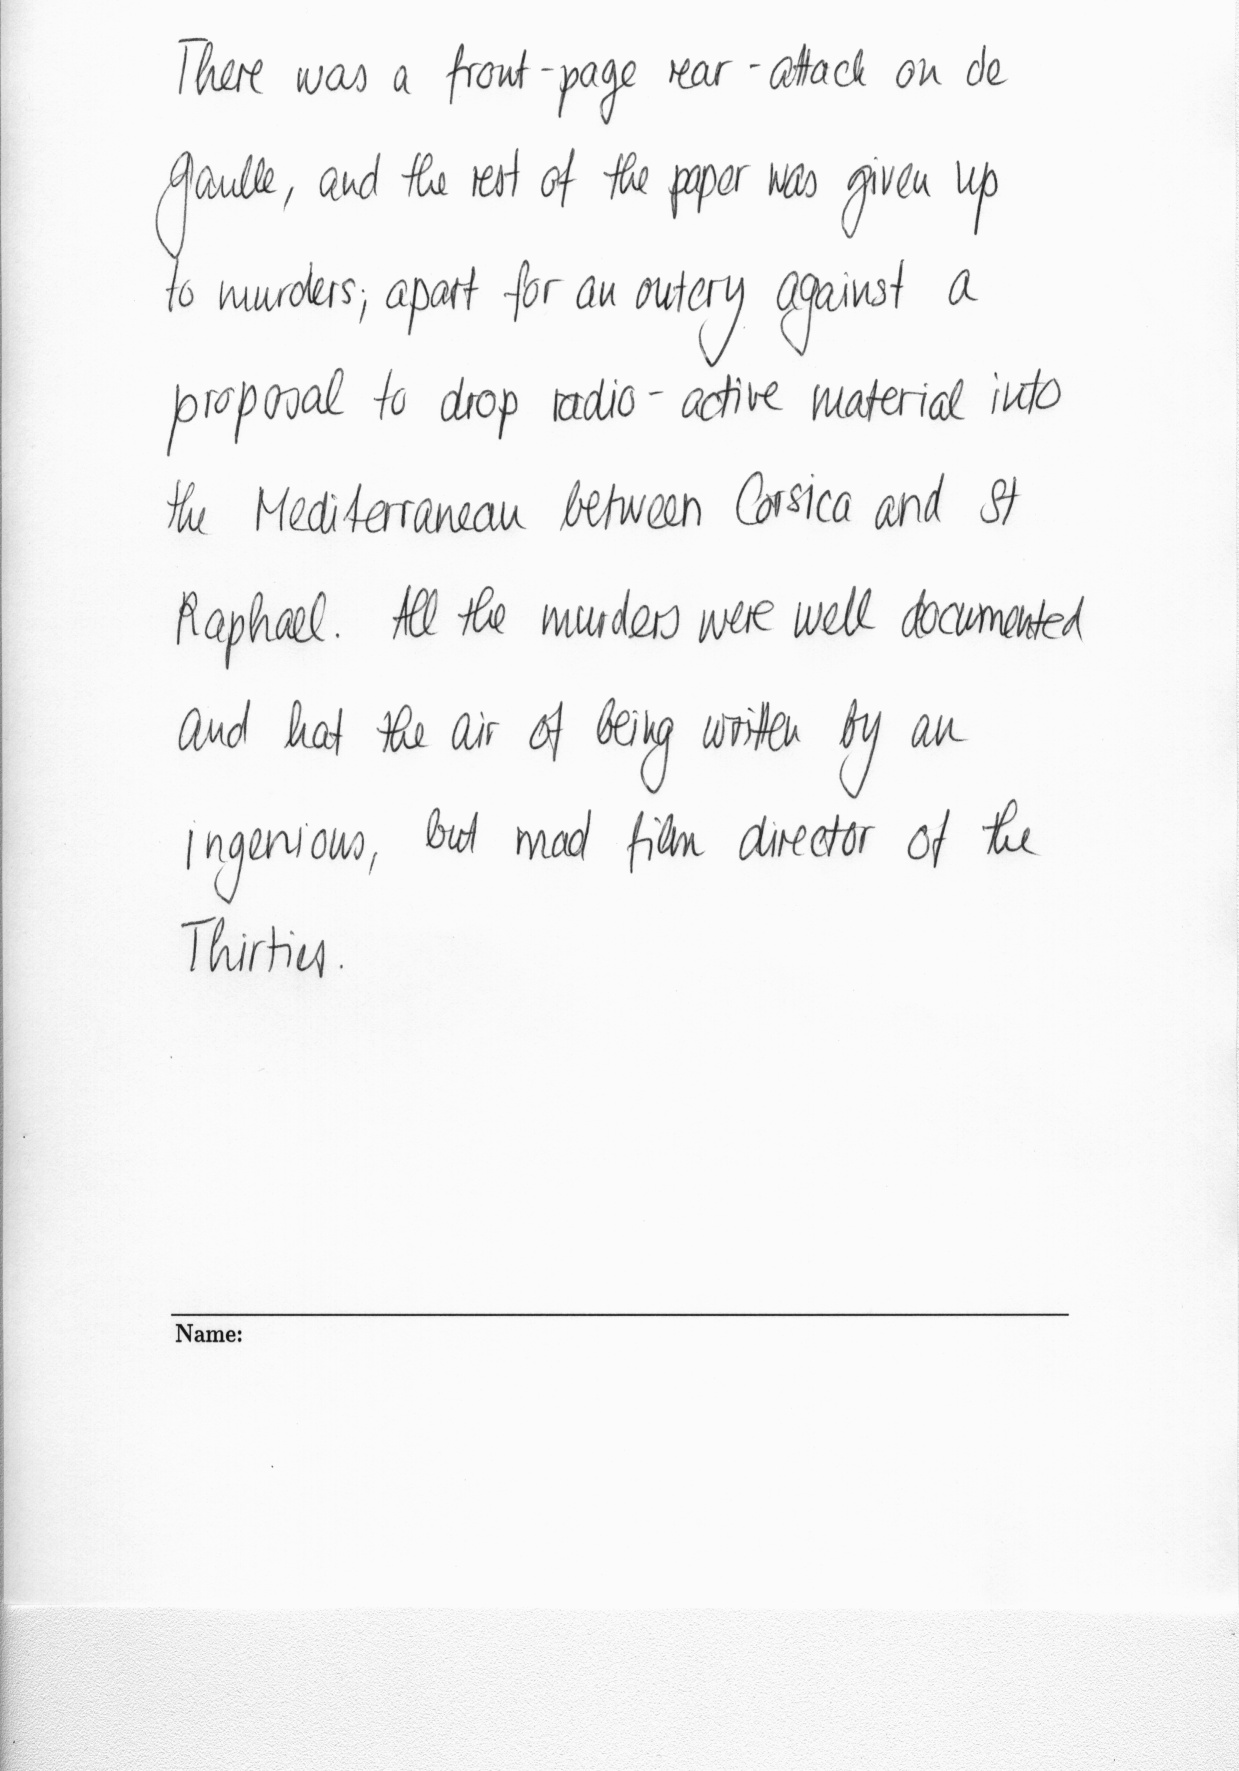 There was a front-page rear-attack on de
Gaulle, and the rest of the paper was given up
to murders; apart for an outcry against a
proposal to drop radio-active material into
the Mediterranean between Corsica and St
Raphael. All the murders were well documented
and hat the air of being written by an
ingenious, but mad film director of the
Thirties.
Name: